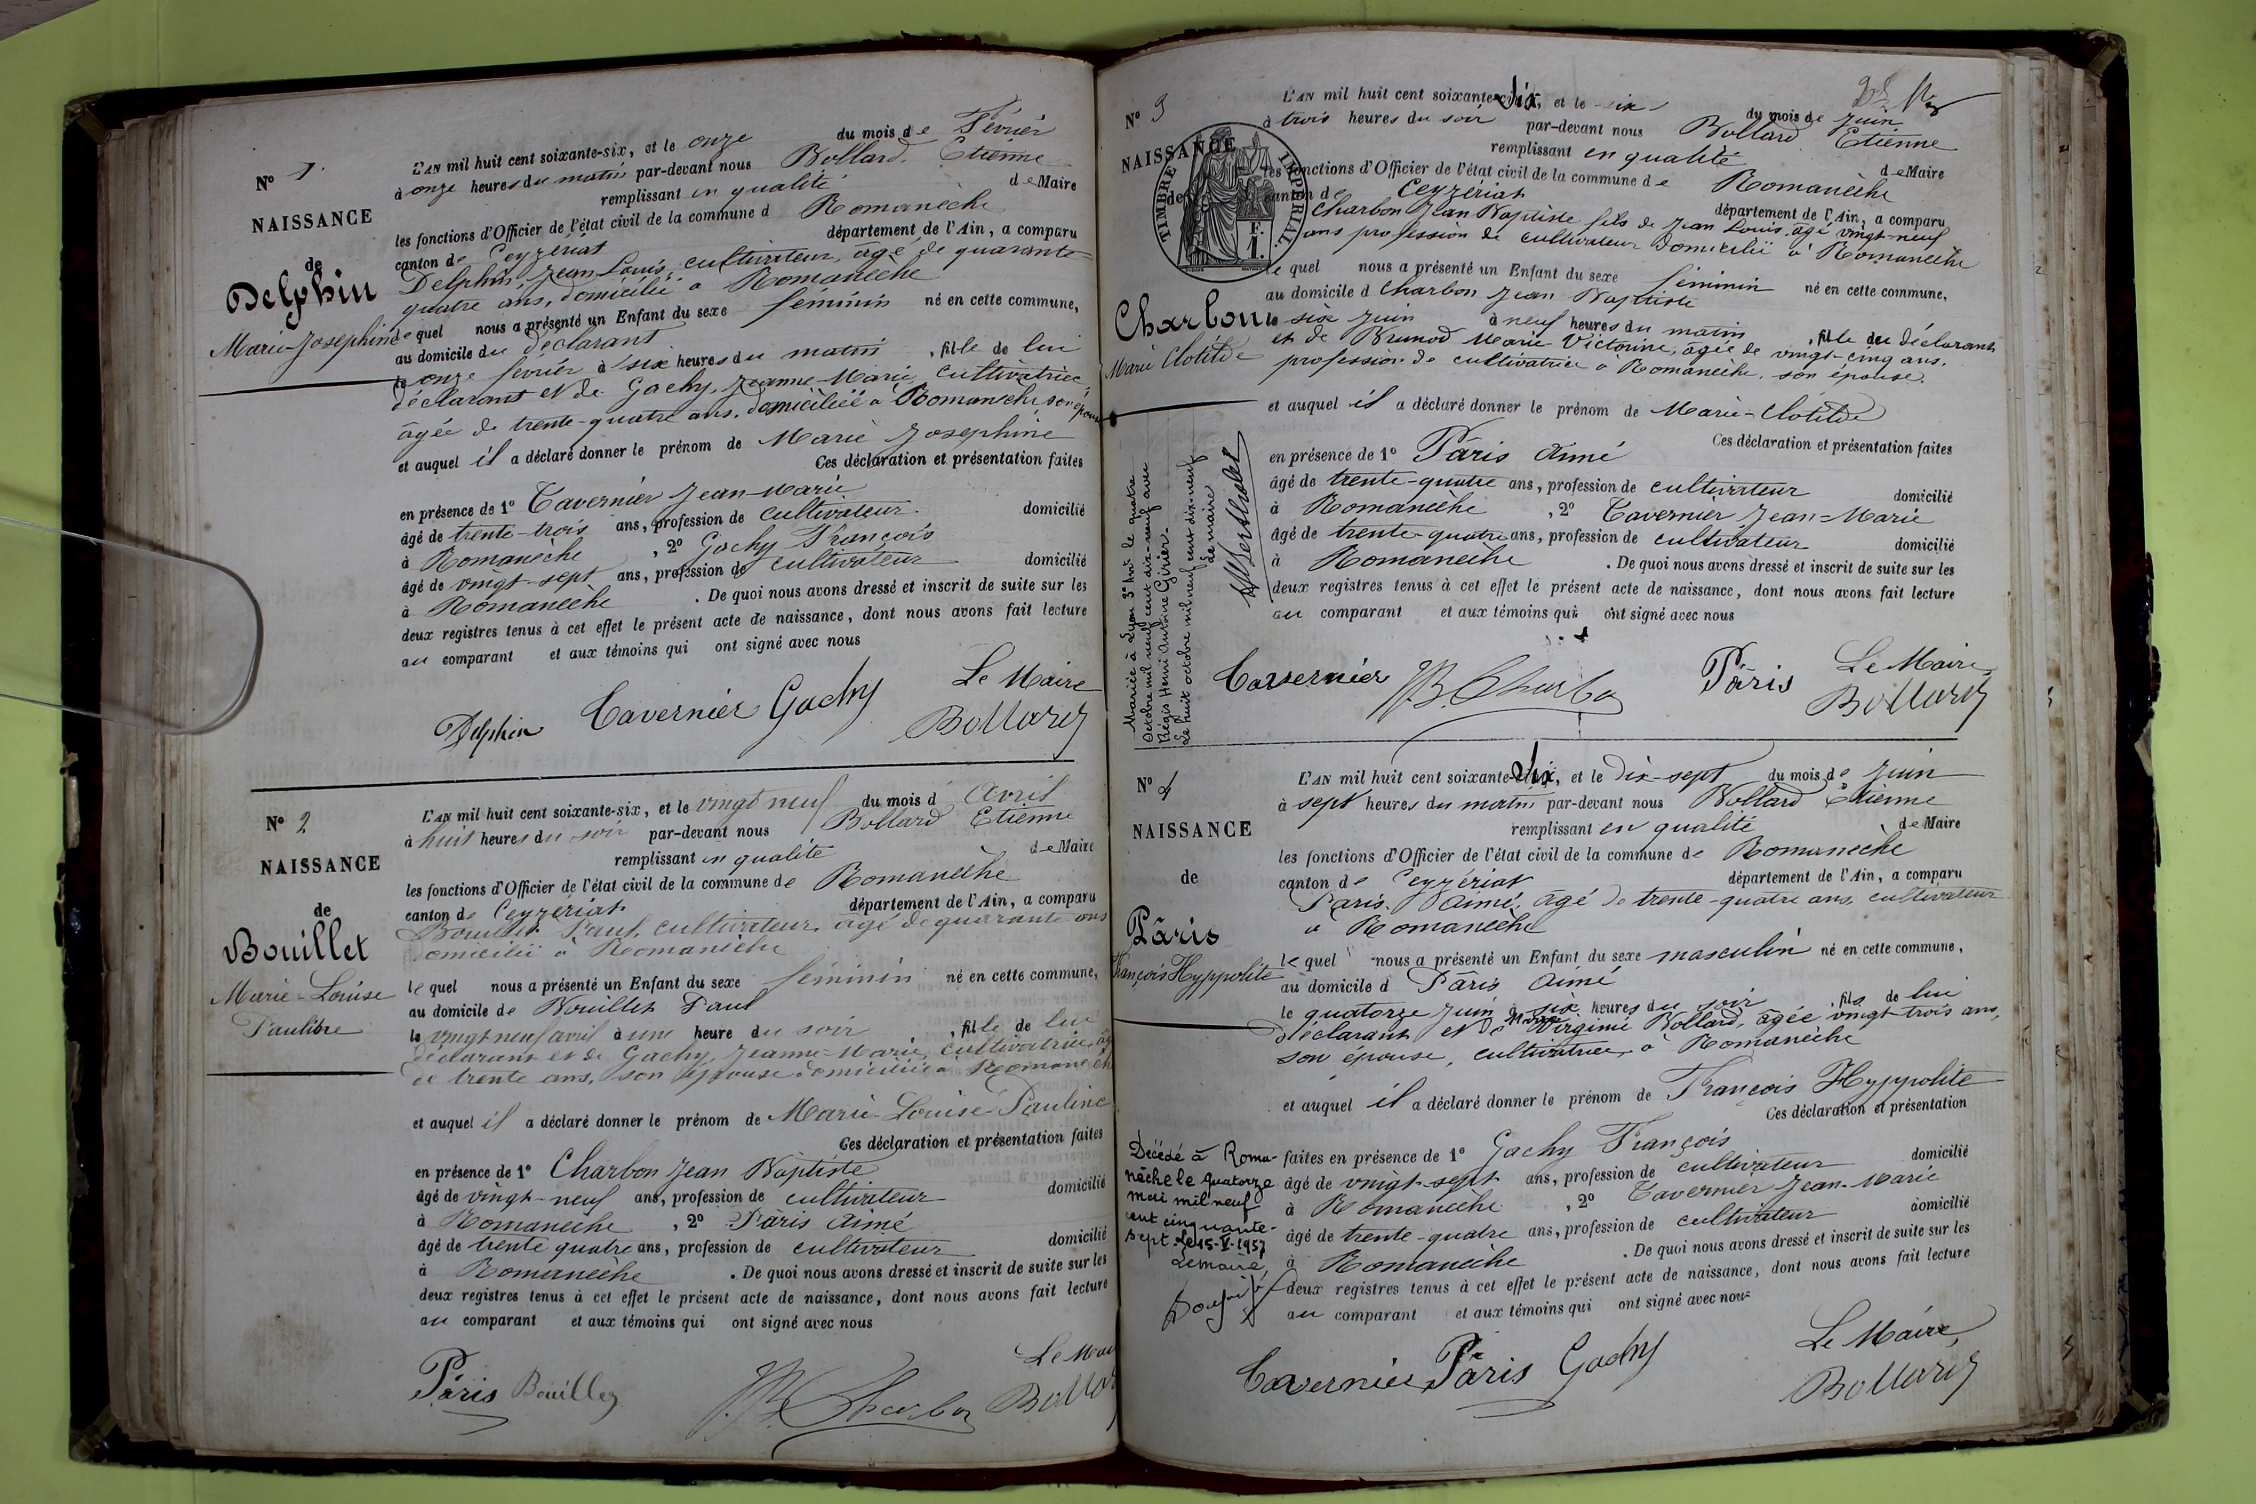 N° 1.
NAISSANCE
de
Delphin
Marie-Josephine
L'AN mil huit cent soixante-six, et le onze du mois de Février
à onze heures du matin par-devant nous Bollard Etienne
remplissant en qualité de Maire
les fonctions d'Officier de l'état civil de la commune d Romanèche
canton de Ceyzériat département de l'Ain, a comparu
Delphin, Jean Louis, cultivateur, âgé de quarante-
quatre ans, domicilié à Romanèche
le quel nous a présenté un Enfant du sexe féminin né en cette commune,
au domicile du déclarant
le onze février à six heures du matin, fille de lui
déclarant et de Gachy, Jeanne-Marie, cultivatrice,
âgée de trente-quatre ans, domiciliée à Romanèche son épouse
et auquel il a déclaré donner le prénom de Marie Josephine
Ces déclaration et présentation faites
en présence de 1° Tavernier Jean-Marie
âgé de trente-trois ans, profession de cultivateur domicilié
à Romanèche, 2° Gachy François
âgé de vingt-sept ans, profession de cultivateur domicilié
à Romanèche. De quoi nous avons dressé et inscrit de suite sur les
deux registres tenus à cet effet le présent acte de naissance, dont nous avons fait lecture
au comparant et aux témoins qui ont signé avec nous
Le Maire
Delphin Tavernier Gachy Bollard
N° 2
NAISSANCE
de
Bouillet
Marie-Louise
Pauline
L'AN mil huit cent soixante-six, et le vingt neuf du mois d Avril
à huit heures du soir par-devant nous Bollard Etienne
remplissant en qualité de Maire
les fonctions d'Officier de l'état civil de la commune de Romanèche
canton de Ceyzériat département de l'Ain, a comparu
Bouillet Paul, cultivateur, âgé de quarante ans
domicilié à Romanèche
le quel nous a présenté un Enfant du sexe féminin né en cette commune,
au domicile de Bouillet Paul
le vingt neuf avril à une heure du soir, fille de lui
déclarant et de Gachy, Jeanne-Marie, cultivatrice, âg
de trente ans, son épouse domiciliée à Romanèch
et auquel il a déclaré donner le prénom de Marie-Louise Pauline
Ces déclaration et présentation faites
en présence de 1° Charbon Jean Baptiste
âgé de vingt-neuf ans, profession de cultivateur domicilié
à Romanèche, 2° Pâris Aimé
âgé de trente quatre ans, profession de cultivateur domicilié
à Romanèche. De quoi nous avons dressé et inscrit de suite sur les
deux registres tenus à cet effet le présent acte de naissance, dont nous avons fait lecture
au comparant et aux témoins qui ont signé avec nous
Le Mai
Pâris Bouillet J.B. Charbon Bollar
N° 3
NAISSANCE
de
TIMBRE IMPERIAL.
F.
1.
Charbon
Marie Clotilde
L'AN mil huit cent soixante-six, et le six du mois de Juin
à trois heures du soir par-devant nous Bollard Etienne
remplissant en qualité de Maire
les fonctions d'Officier de l'état civil de la commune de Romanèche
canton de Ceyzériat département de l'Ain, a comparu
Charbon Jean Baptiste fils de Jean Louis, âgé vingt-neuf
ans profession de cultivateur domicilié à Romanèche
le quel nous a présenté un Enfant du sexe féminin né en cette commune,
au domicile d Charbon Jean Baptiste
le six juin à neuf heures du matin, fille du déclarant
et de Brunod Marie Victorine, âgée de vingt-cinq ans,
profession de cultivatrice à Romanèche, son épouse.
et auquel il a déclaré donner le prénom de Marie-Clotilde
Ces déclaration et présentation faites
en présence de 1° Pâris Aimé
âgé de trente-quatre ans, profession de cultivateur domicilié
à Romanèche, 2° Tavernier Jean-Marie
âgé de trente-quatre ans, profession de cultivateur domicilié
à Romanèche. De quoi nous avons dressé et inscrit de suite sur les
deux registres tenus à cet effet le présent acte de naissance, dont nous avons fait lecture
au comparant et aux témoins qui ont signé avec nous
Mariée à Lyon 3e Arrt le quatre
Octobre mil neuf cent dix-neuf avec
Régis Henri Antoine Girier.
Le huit octobre mil neuf cent dix-neuf
Le maire
Le Maire
Tavernier J.B. Charbon Pâris Bollard
N° 4
NAISSANCE
de
Pâris
François Hyppolite
L'AN mil huit cent soixante-six, et le dix-sept du mois de Juin
à sept heures du matin par-devant nous Bollard Etienne
remplissant en qualité de Maire
les fonctions d'Officier de l'état civil de la commune de Romanèche
canton de Ceyzériat département de l'Ain, a comparu
Pâris, Aimé, âgé de trente-quatre ans, cultivateur
à Romanèche
le quel nous a présenté un Enfant du sexe masculin né en cette commune,
au domicile d Pâris Aimé
le quatorze Juin à six heures du soir, fils de lui
déclarant et de Marie Virginie Bollard, âgée vingt-trois ans,
son épouse, cultivatrice à Romanèche
et auquel il a déclaré donner le prénom de François Hyppolite
Ces déclaration et présentation
faites en présence de 1° Gachy François
âgé de vingt-sept ans, profession de cultivateur domicilié
à Romanèche, 2° Tavernier Jean-Marie
âgé de trente-quatre ans, profession de cultivateur domicilié
à Romanèche. De quoi nous avons dressé et inscrit de suite sur les
deux registres tenus à cet effet le présent acte de naissance, dont nous avons fait lecture
au comparant et aux témoins qui ont signé avec nous
Décédé à Roma-
nèche le quatorze
mai mil neuf
cent cinquante-
sept. Le 15-V-1957
Le maire,
Le Maire,
Tavernier Pâris Gachy Bollard